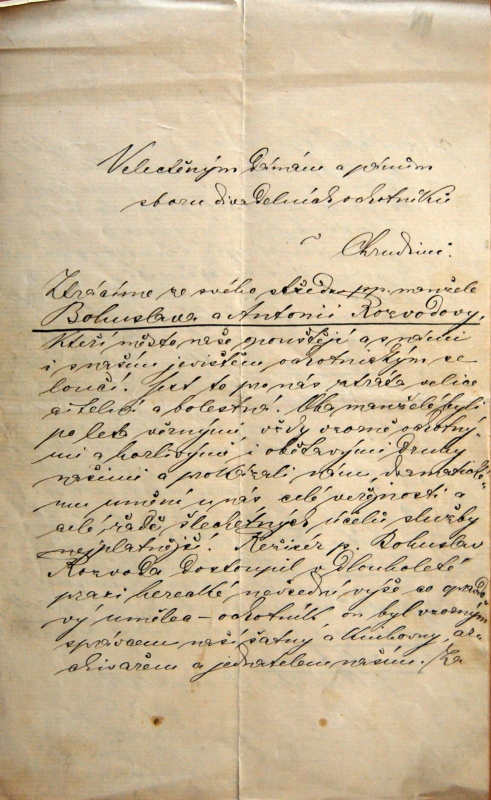 Velectěným dámám a pánům
sboru divadelních ochotníků
v Chrudimi.
Ztrácíme ze svého středu pp. manžele
Bohuslava a Antonii Rozvodovy,
kteří město naše opouštějí a s námi
i s naším jevištěm ochotnickým se
loučí. Jest to pro nás ztráta velice
citelná a bolestná. Oba manželé byli
po léta věrnými, vždy vzorně ochotný-
mi a horlivými i obětavými druhy
našimi a prokázali nám, dramatické-
mu umění u nás, celé veřejnosti a
celé řadě šlechetných účelů služby
nejplatnější. Režisér p. Bohuslav
Rozvoda dostoupil v dlouholeté
praxi herecké nevšední výše co opravdo-
vý umělec-ochotník, on byl vzorným
správcem naší šatny a knihovny, ar-
chivářem a jednatelem naším. Za